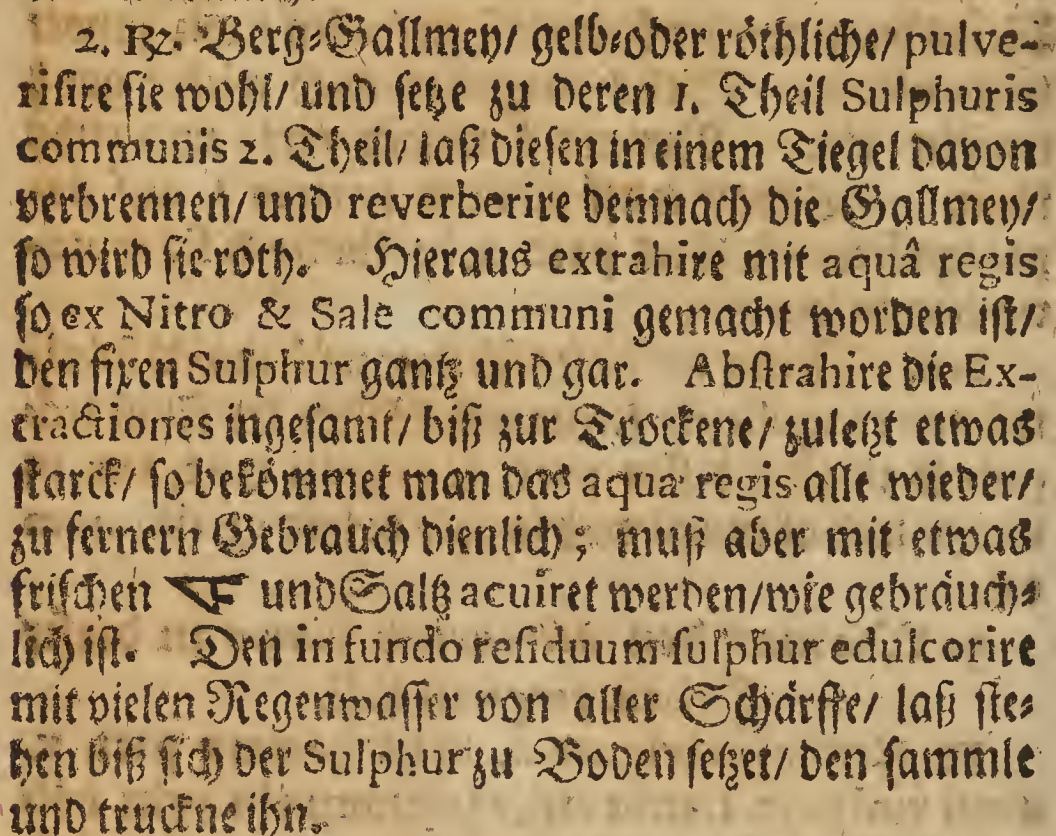 2. ℞. Berg⸗Gallmey/ gelb⸗oder röthliche/ pulve-
riſire ſie wohl/ und ſetze zu deren 1. Theil Sulphuris
communis 2. Theil/ laß dieſen in einem Tiegel davon
verbrennen/ und reverberire demnach die Gallmey/
ſo wird ſie roth. Hieraus extrahire mit aquâ regis
ſo ex Nitro & Sale communi gemacht worden iſt/
den fixen Sulphur gantz und gar. Abſtrahire die Ex-
tractiones ingeſamt/ biß zur Trockene/ zuletzt etwas
ſtarck/ ſo bekömmet man das aqua regis alle wieder/
zu fernern Gebrauch dienlich; muß aber mit etwas
friſchen 🜅 und Saltz acuiret werden/ wie gebräuch⸗
lich iſt. Den in fundo reſiduum ſulphur edulcorire
mit vielen Regenwaſſer von aller Schärffe/ laß ſte⸗
hen biß ſich der Sulphur zu Boden ſetzet/ den ſammle
und truckne ihn.